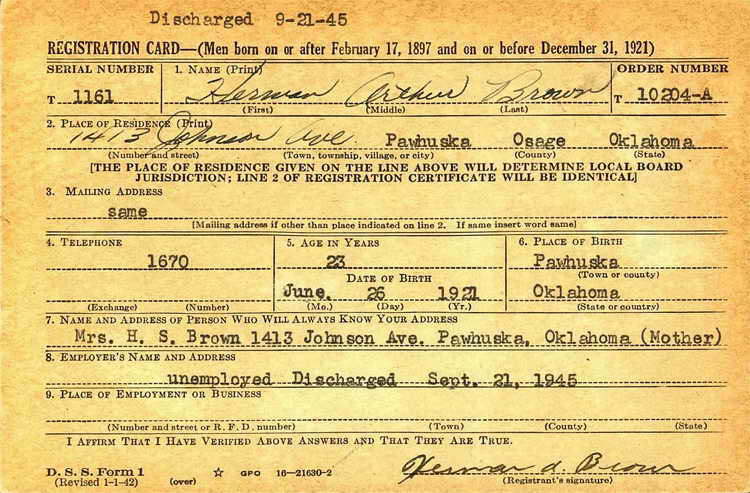 Discharged 9-21-45
REGISTRATION CARD—(Men born on or after February 17, 1897 and on or before December 31, 1921)
SERIAL NUMBER 1. NAME (Print) ORDER NUMBER
T 1161 Herman Arthur Brown T 10204-A
(First) (Middle) (Last)
2. PLACE OF RESIDENCE (Print)
1413 Johnson Ave. Pawhuska Osage Oklahoma
(Number and street) (Town, township, village, or city) (County) (State)
[THE PLACE OF RESIDENCE GIVEN ON THE LINE ABOVE WILL DETERMINE LOCAL BOARD
JURISDICTION; LINE 2 OF REGISTRATION CERTIFICATE WILL BE IDENTICAL]
3. MAILING ADDRESS
same
[Mailing address if other than place indicated on line 2. If same insert word same]
4. TELEPHONE 5. AGE IN YEARS 6. PLACE OF BIRTH
1670 23 Pawhuska
DATE OF BIRTH (Town or county)
June. 26 1921 Oklahoma
(Exchange) (Number) (Mo.) (Day) (Yr.) (State or country)
7. NAME AND ADDRESS OF PERSON WHO WILL ALWAYS KNOW YOUR ADDRESS
Mrs. H. S. Brown 1413 Johnson Ave. Pawhuska, Oklahoma (Mother)
8. EMPLOYER'S NAME AND ADDRESS
unemployed Discharged Sept. 21, 1945
9. PLACE OF EMPLOYMENT OR BUSINESS
(Number and street or R. F. D. number) (Town) (County) (State)
I AFFIRM THAT I HAVE VERIFIED ABOVE ANSWERS AND THAT THEY ARE TRUE.
D. S. S. Form 1 GPO 16—21630-2 Herman A. Brown
(Revised 1-1-42) (over) (Registrant's signature)